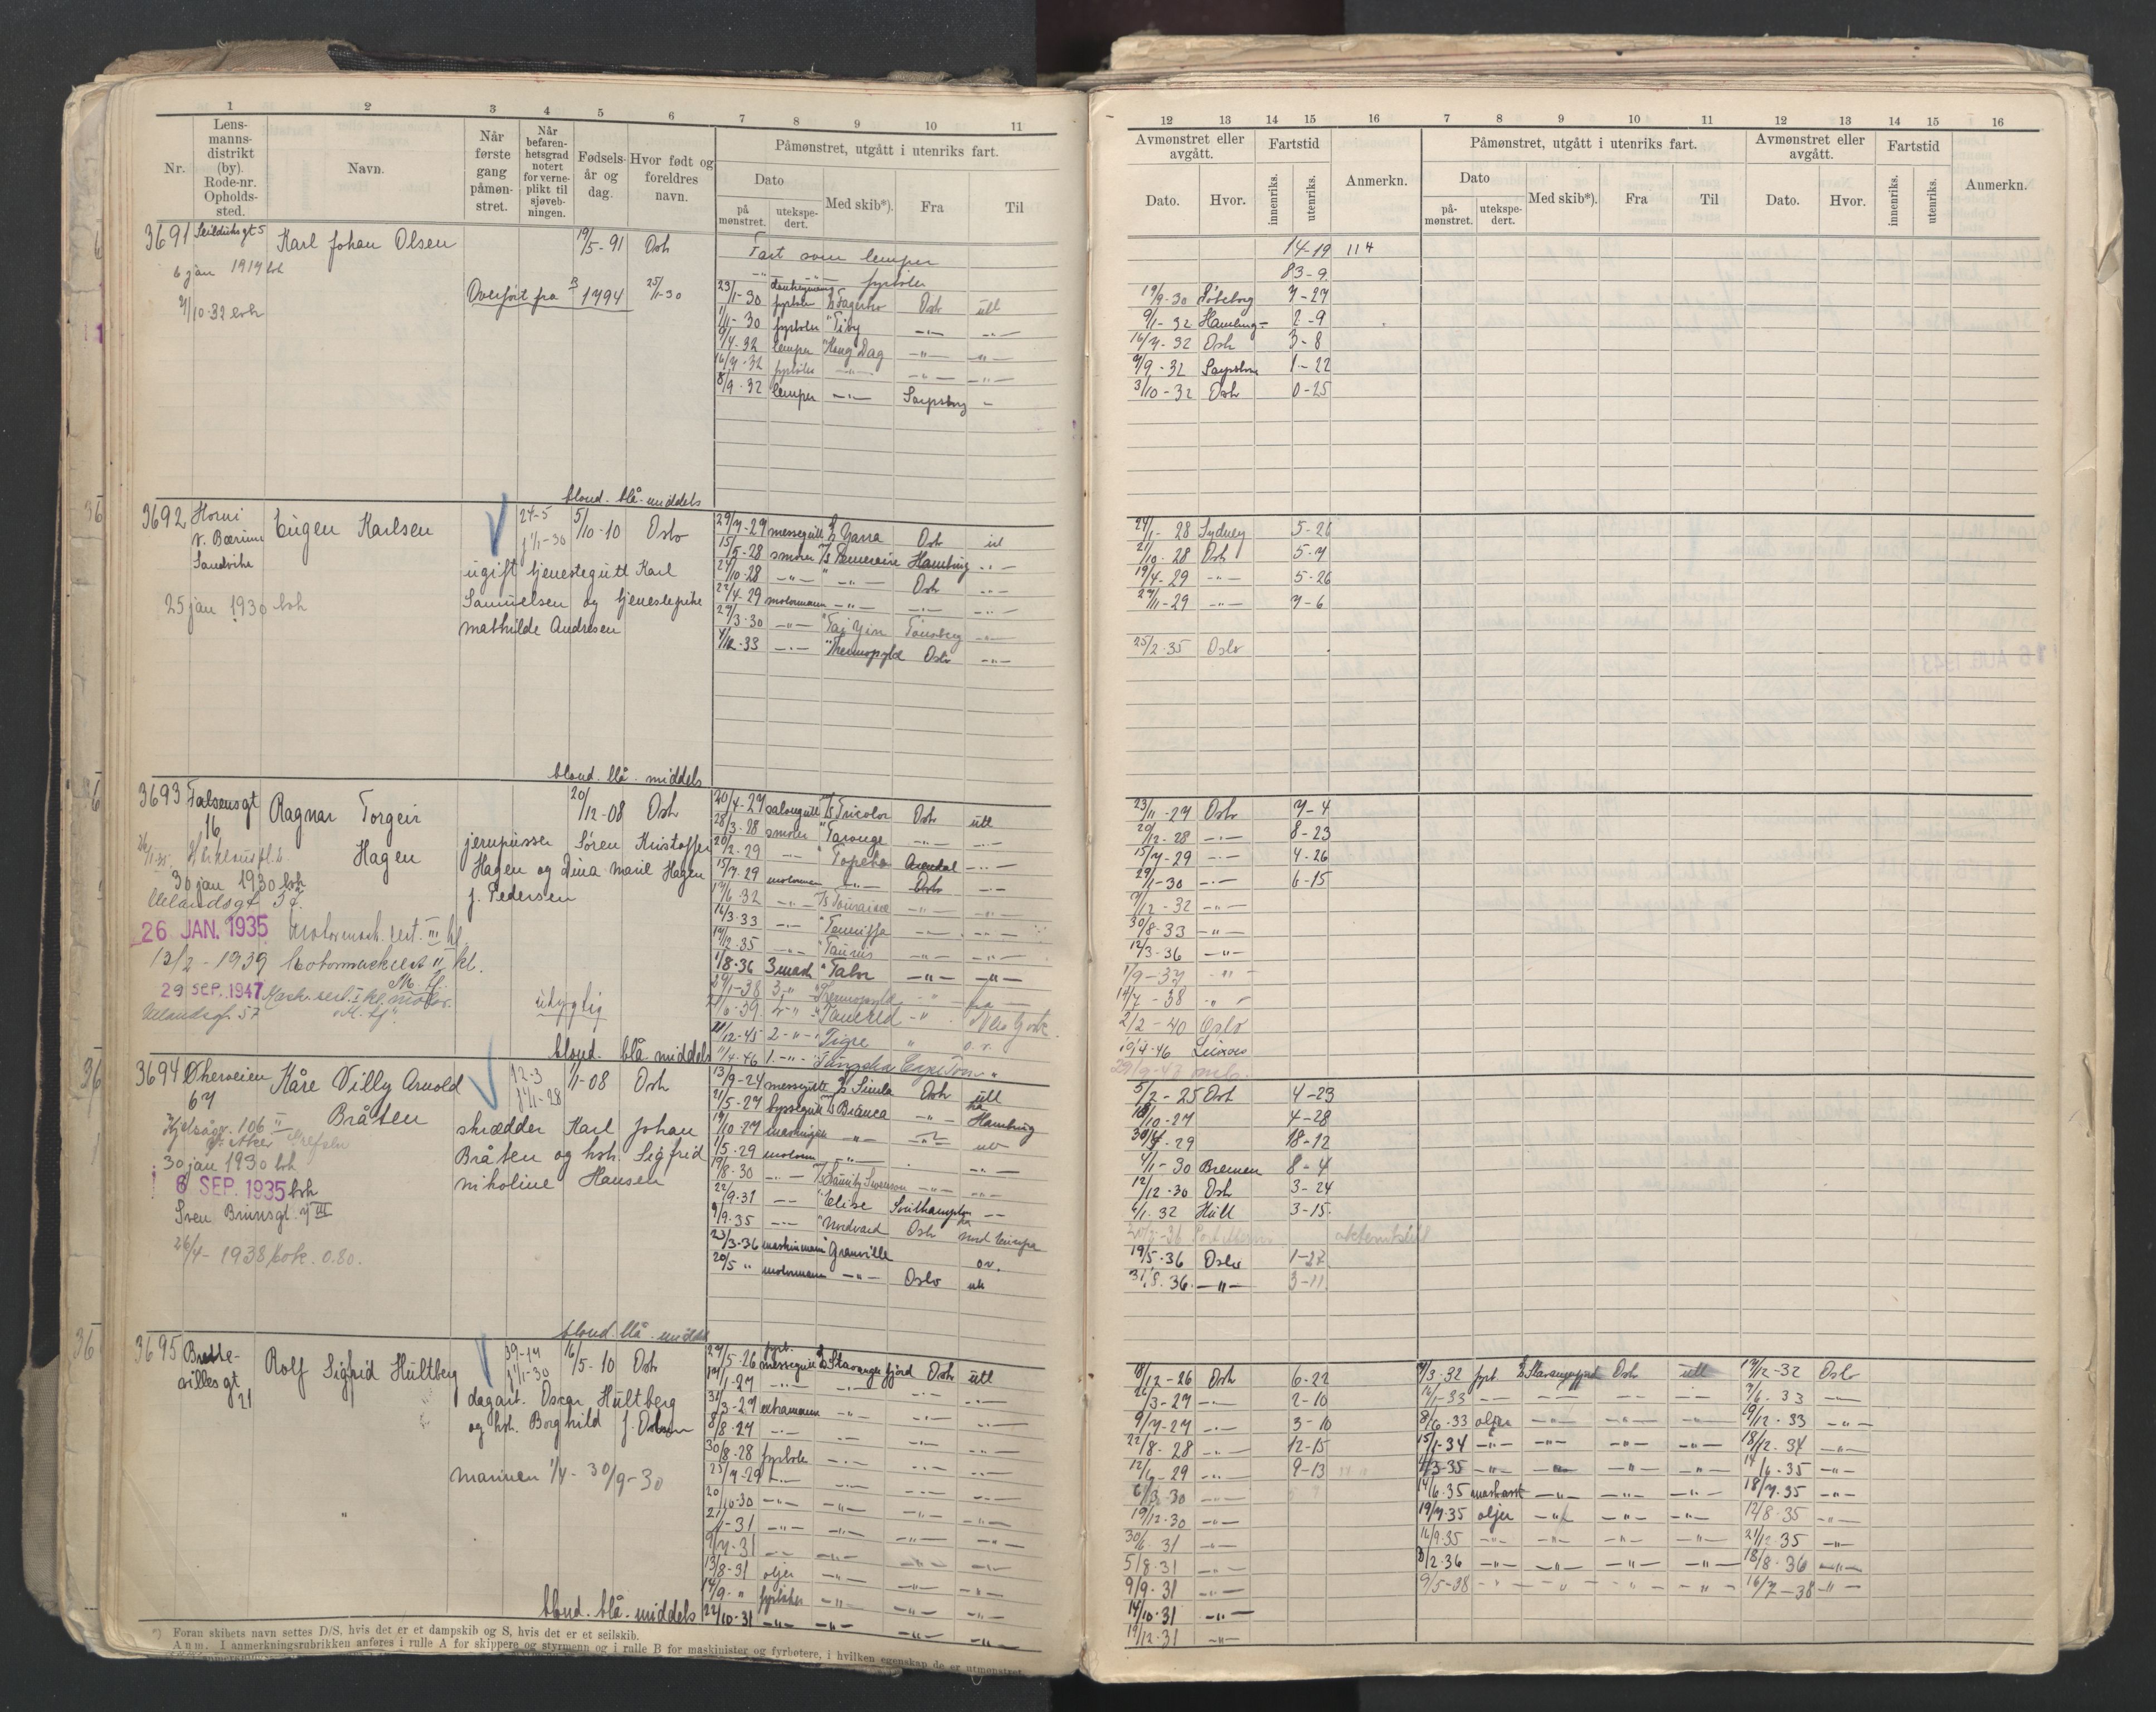 1 2 3 4 5 6 7 8 9 10 11
Nr.
Lens-
manns-
distrikt
(by).
Rode-nr.
Opholds-
sted.
Navn.
Når
første
gang
påmøn-
stret.
Når
befaren-
hetsgrad
notert
for verne-
plikt til
sjøveb-
ningen.
Fødsels-
år og
dag.
Hvor født og
foreldres
navn.
Påmønstret, utgått i utenriks fart.
Dato
på
mønstret.
utekspe-
dert.
Med skib*).
Fra
Til
3691
Karl Johan Olsen
19/5-91 Osl
Fart som lemper
-"- fyrbøter
6 jan 1917
Overført fra B 1794 25/1-30
23/1-30 fyrbøter Osl utl
1/11-30 fyrbøter Tiby -"- -"-
9/4-32 lemper Haug Dag -"- -"-
16/7-32 fyrbøter -"- -"- -"-
8/9-32 lemper -"- Sarpsborg -
blond. blå. middels
3692 Eugen Karlsen
v. Bærum
Sandvika
24-5
1/1-30
5/10-10 Oslo
ugift tjenestegutt Karl
Samuelsen og tjenestepike
Mathilde Andresen
25 jan 1930
29/7-27 messegutt Yarra Osl utl
15/5-28 smører Temeraire Hamburg -"-
24/10-28 -"- -"- Osl -"-
22/4-29 motormann -"- -"- -"-
27/3-30 -"- Tai Yin Tønsberg -"-
4/12-33 -"- Thermopylæ Oslo -"-
blond. blå. middels
3693 Falsensgt
16
Ragnar Torgeir
Hagen
20/12-08 Osl
jernpusser Søren Kristoffer
Hagen og Dina Marie Hagen
f. Pedersen
30 jan 1930
Uelandsgt 57.
26 JAN. 1935 Motormask. sert. III kl.
13/2-1939 Motormaskcert II kl.
29 SEP. 1947 Mask. sert. I kl. motor.
Uelandsgt 57
udygtig
20/4-27 salongutt Tricolor Osl utl
28/3-28 smører Taronga -"- -"-
20/2-29 -"- Topeka Arendal -"-
15/7-29 motormann -"- Osl -"-
17/6-32 -"- Touraine -"- -"-
16/3-33 -"- Teneriffa -"- -"-
17/12-35 -"- Taurus -"- -"-
1/8-36 3 mask Talor -"- -"-
29/1-38 3 -"- Thermopylæ -"-
Tauerld -"- New York
21/12-45 2 -"- Tigre " o.v.
11/4-46 1. -"- Sungdia Cape Town "
blond. blå. middels
3694 Økerveien
67
Kåre Villy Arnold
Bråten
12-3
1/1-28
1/1-08 Osl
skrædder Karl Johan
Bråten og hstr. Sigfrid
Nikoline Hansen
Kjelsåsv. 106 II
V. Aker Grefsen
30 jan 1930
6 SEP. 1935
Sven Bruunsgt. 7 III
26/4-1938 bok. 0.80.
13/9-24 messegutt Simla Osl utl
21/5-27 byssegutt Bianca -"- Hamburg
19/10-27 maskingutt -"- -"- utl
1/5-29 motorm -"- -"-
19/8-30 -"- -"- -"-
22/9-31 -"- Elise Southampton -"-
9/9-35 -"- Nordvard Osl Nord Europa
23/3-36 maskinmann Granville o.v.
20/5 " motormann -"- Oslo utl
blond. blå. middels
3695 Brette-
villes gt
21
Rolf Sigfrid Hultberg
39-14
1/1-30
16/5-10 Osl
dagarb. Oscar Hultberg
og hstr. Borghild f. Olsen
marinen 1/4-30/9-30
27/5-26 messegutt Stavangerfjord Osl utl
19/1-27 -"- -"- -"- -"-
31/3-27 extramann -"- -"- -"-
8/8-27 -"- -"- -"- -"-
30/8-28 fyrbøter -"- -"- -"-
25/7-29 -"- -"- -"- -"-
20/10-30 -"- -"- -"- -"-
21/1-31 -"- -"- -"- -"-
9/7-31 -"- -"- -"- -"-
13/8-31 oljer -"- -"- -"-
14/9- " fyrbøter -"- -"- -"-
22/10-31 -"- -"- -"- -"-
blond. blå. middels
*) Foran skibets navn settes D/S, hvis det er et dampskib og S, hvis det er et seilskib.
Anm. I anmerkningsrubrikken anføres i rulle A for skippere og styrmenn og i rulle B for maskinister og fyrbøtere, i hvilken egenskap de er utmønstret
12 13 14 15 16 7 8 9 10 11 12 13 14 15 16
Avmønstret eller
avgått.
Fartstid
Dato.
Hvor.
innenriks.
utenriks.
Anmerkn.
Påmønstret, utgått i utenriks fart.
Dato
på-
mønstret.
utekspe-
dert.
Med skib*).
Fra
Til
Avmønstret eller
avgått.
Dato.
Hvor.
Fartstid
innenriks.
utenriks.
Anmerkn.
14-19 114
83-9
19/9-30 Gøteborg 7-27
9/1-32 Hamburg 2-9
16/7-32 Osl 3-8
7/9-32 Sarpsborg 1-22
3/10-32 Osl 0-25
24/1-28 Sydney 5-26
21/10-28 Osl 5-7
19/4-29 -"- 5-26
27/11-29 -"- 7-6
25/2-35 Oslo
23/11-27 Osl 7-4
20/12-28 -"- 8-23
15/7-29 -"- 4-26
29/1-30 -"- 6-15
7/12-32 -"-
30/8-33 -"-
12/3-36 -"-
1/9-37 -"-
14/7-38 -"-
2/2-40 Oslo
19/4-46
29/9-47
5/2-25 Osl 4-23
18/10-27 4-28
30/4-29 18-12
4/1-30 Bremen 8-4
12/12-30 Osl 3-24
6/1.32 Hull 3-15.
19/5-36 Oslo 1-27
31/8.36. -"- 3-11
18/12-26 Osl 6-22
22/3-27 -"- 2-10
9/7-27 -"- 3-10
22/8-28 -"- 12-15
12/6-29 -"- 9-13
6/3-30 -"-
19/12-30 -"-
30/6.31 -"-
5/8-31 -"-
9/9-31 -"-
14/10-31 -"-
19/12-31 -"-
7/3-32 fyrb. Stavangerfjord Osl utl 17/12-32 Oslo
16/1-33 -"- -"- -"- -"- 7/6.33 -"-
8/6.33 oljer -"- -"- -"- 19/12.33 -"-
15/1-34 -"- -"- -"- -"- 18/12.34 -"-
1/3-35 -"- -"- -"- -"- 14/6.35 -"-
14/6.35 maskasst -"- -"- -"- 18/7.35 -"-
19/7.35 oljer -"- -"- -"- 12/8.35 -"-
16/9.35 -"- -"- -"- -"- 21/12.35 -"-
3/2.36 -"- -"- -"- -"- 18/8.36 -"-
9/5-38 -"- -"- -"- -"- 16/7-38 -"-